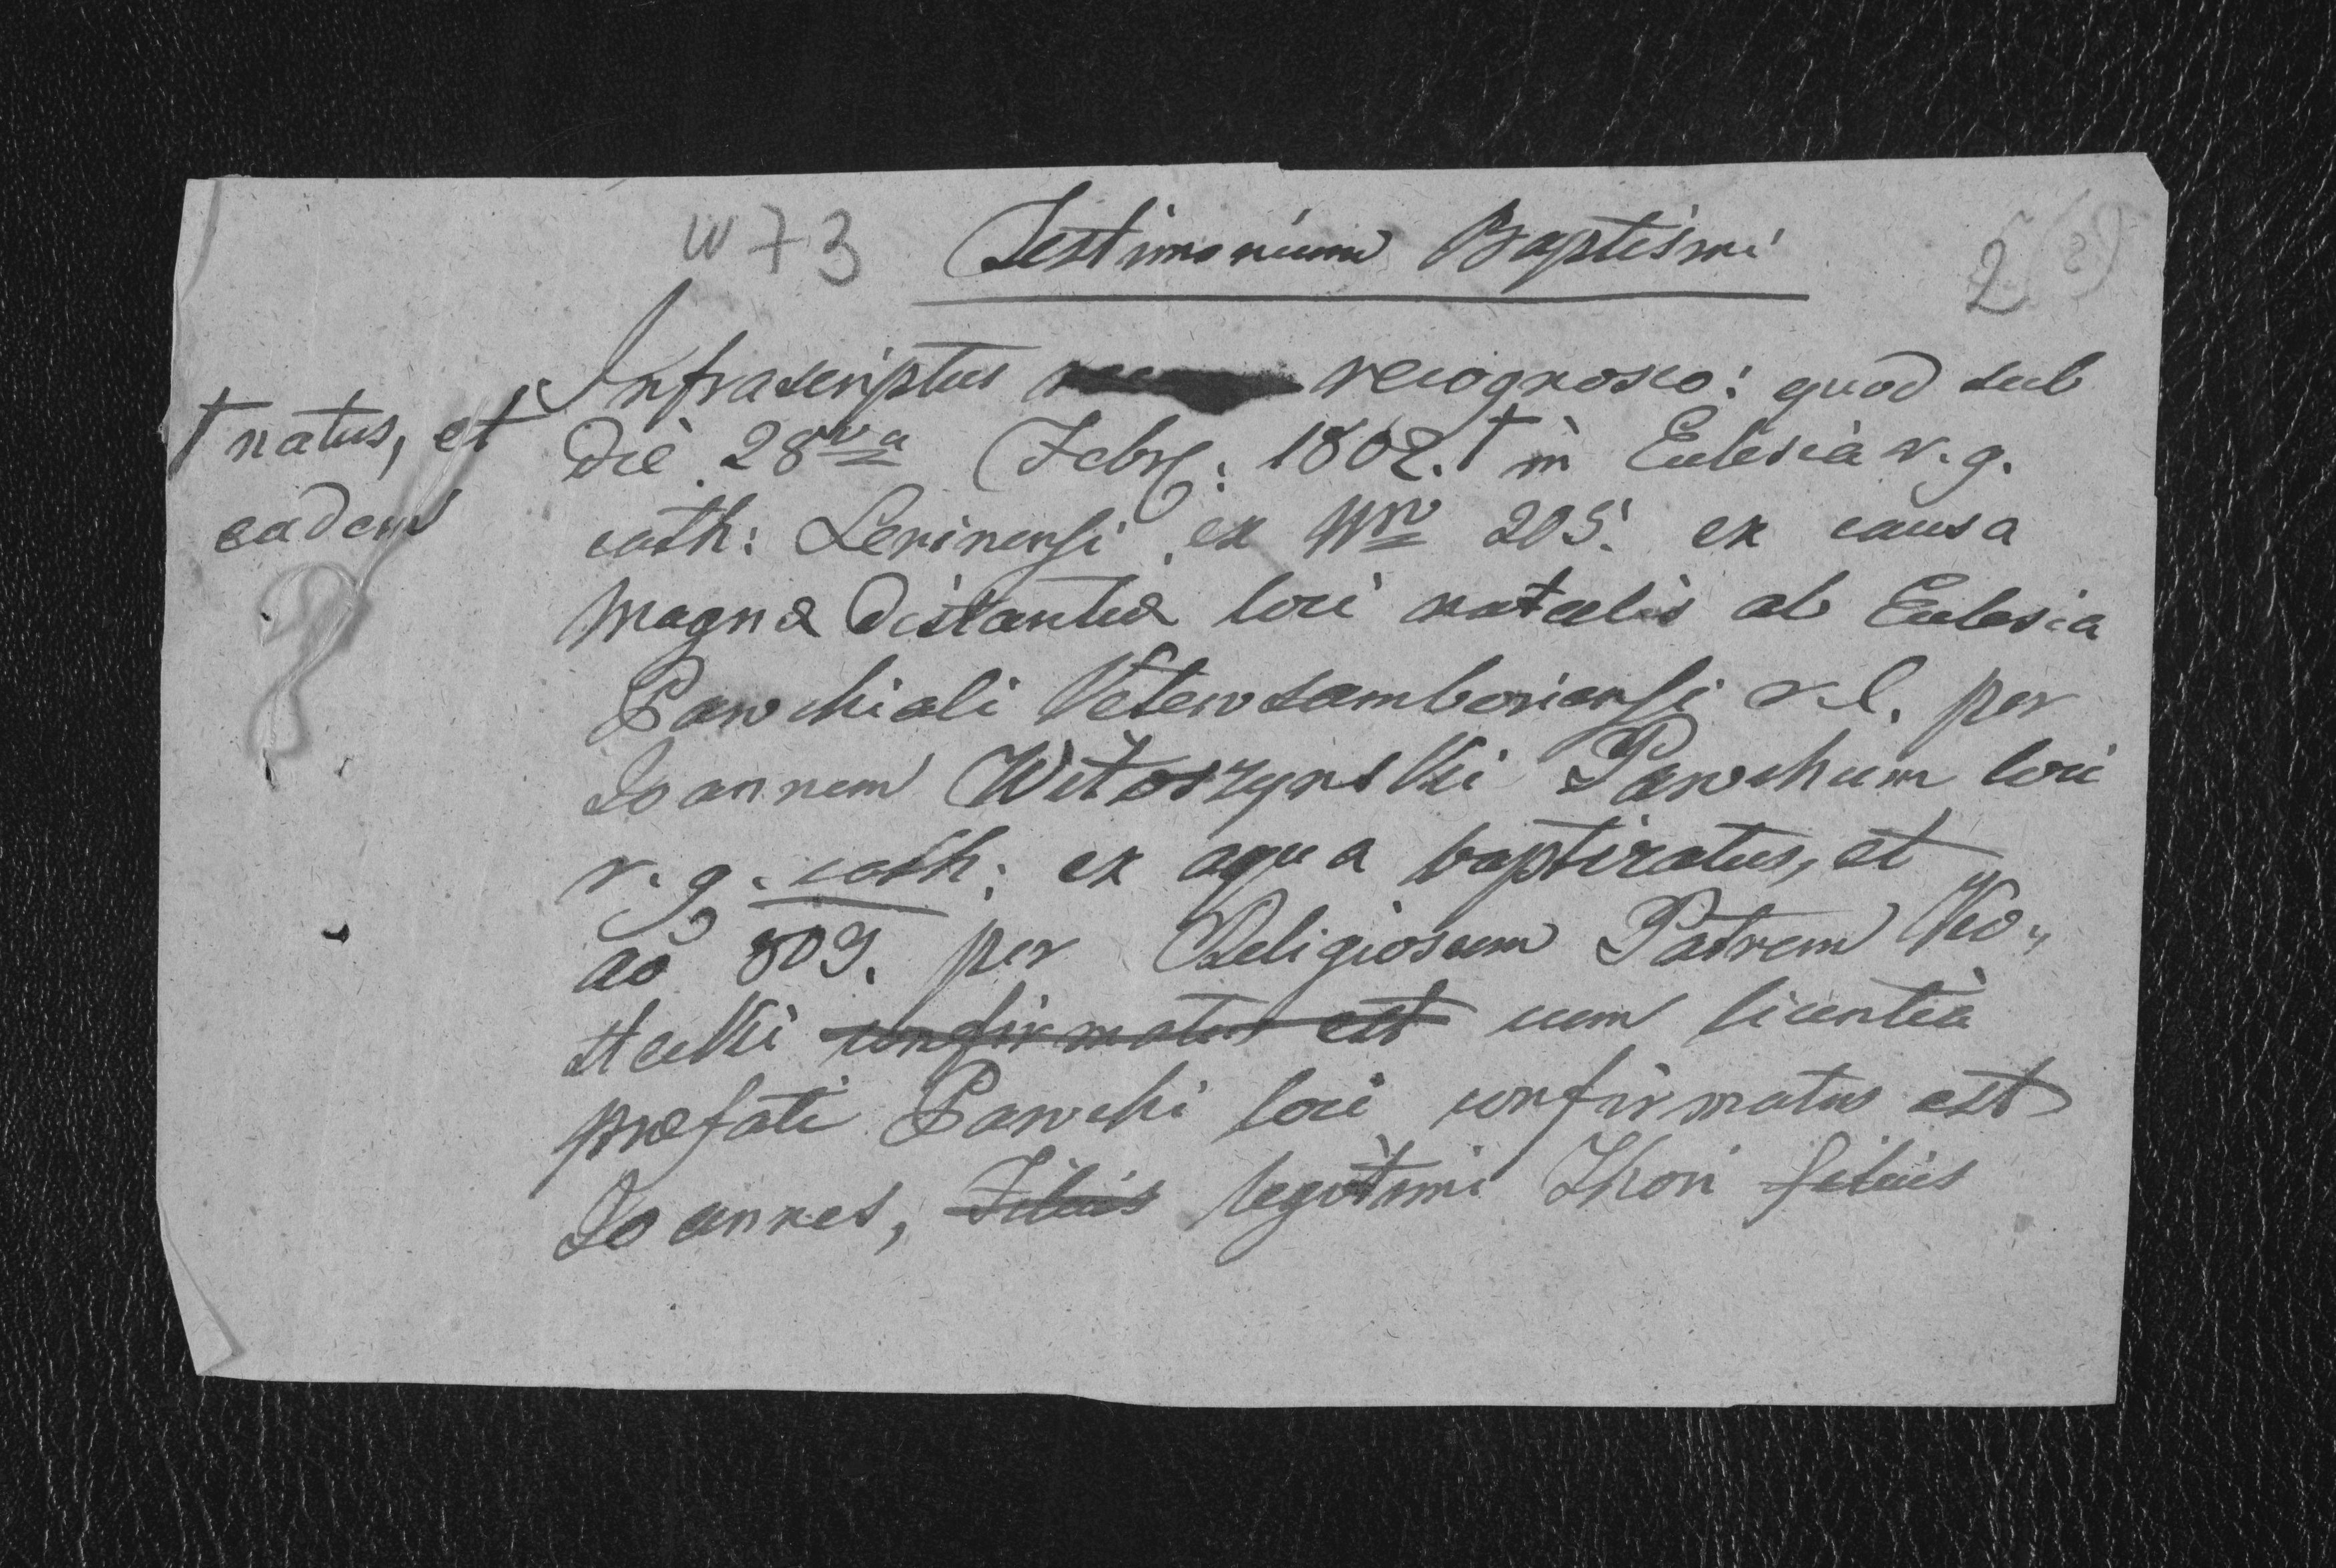 w 73 Testimonium Baptismi 2 (2)
Infrascriptus recognosco: quod sub
† natus, et
eadem
die 28va Febr: 1802.† in Eclesia r. g.
cath: Leninensi ex Nro 205. ex causa
magnæ distantiæ loci natalis ab Eclesia
Parochiali Veterosamboriensi r. l. per
Joannem Witoszynski Parochum loci
r. g. cath: ex aqua baptizatus, et
ao 809. per Religiosum Patrem Ko„
stecki confirmatus est cum licentia
præfati Parochi loci confirmatus est
Joannes, Filius legitimi Thori filius